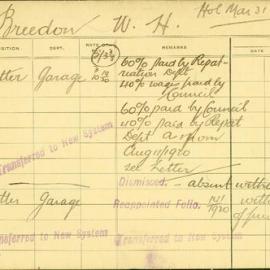 Breedon W. H. Hol Mar 31
POSITION DEPT. RATE REMARKS
tter Garage 60% paid by Repat-
riation Dept
40% wages paid by
Council
60% paid by Council
40% paid by Repat
Dept from
Aug 11/1920
see Letter
Transferred to New System
Dismissed. - absent witho
tter Garage Reappointed Folio. 1920
Transferred to New System Transferred to New System